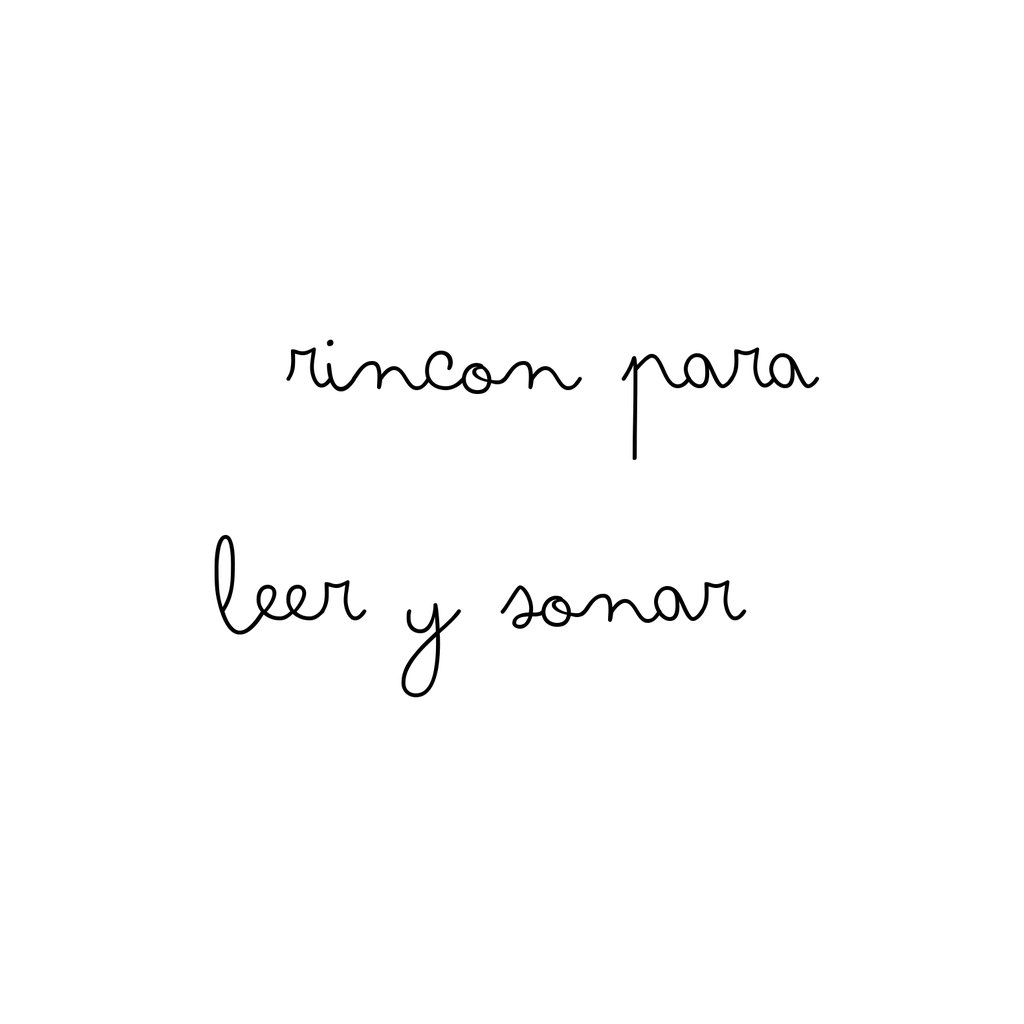 rincon para
leer y sonar